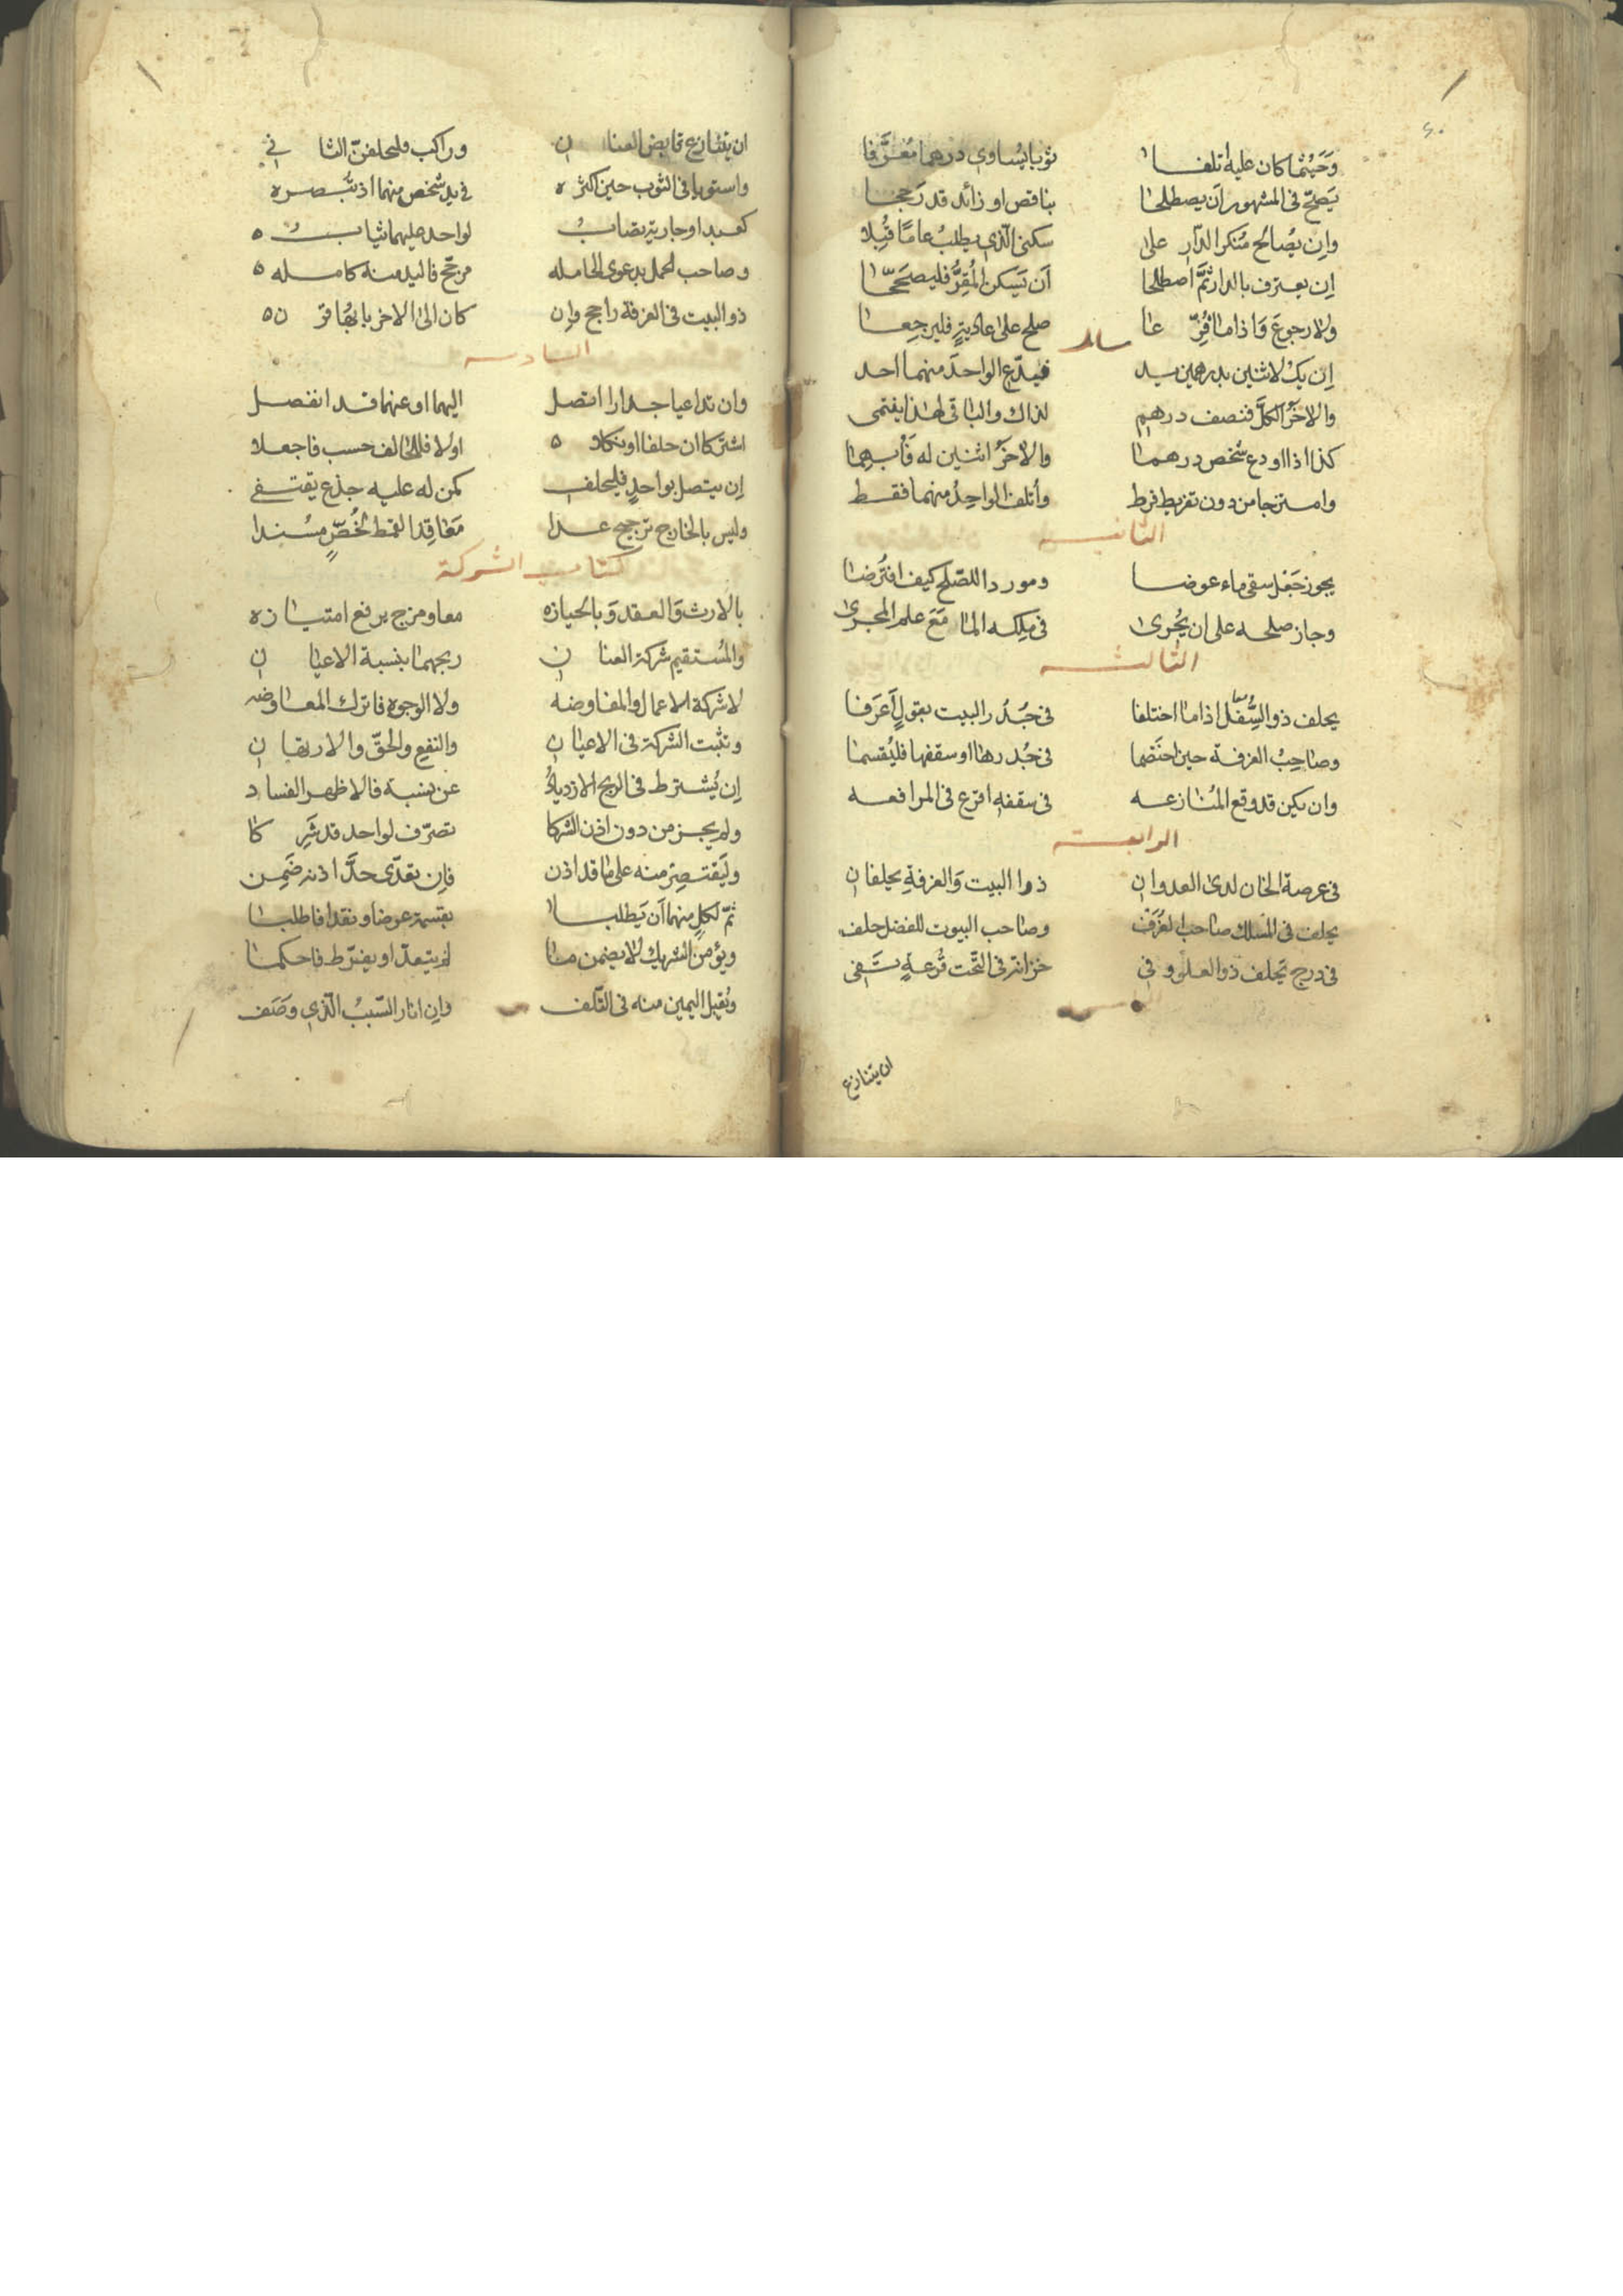 وحيثما كان عليه أتلفا ثوبا يساوي درهما مغرّفا
يصحّ في المشهور أن يصطلحا بناقص او زائد قد رجحا
وإن يصالح منكر الدّار على سكنى الّذي يطلب عاما قبلا
إن يعترف بالدار ثمّ اصطلحا أن يسكن المُقِرُّ فليصحّحا
ولا رجوع وإذا ما فرّعا صلح على عاديةٍ فليرجعا
مسائل
إن يك لاثنين يد رهمين يد فيدّع الواحد منهما احد
والآخر الكلّ فنصف درهم لذاك والباقي لهذا ينتمي
كذا اذا اودع شخص درهما والآخر اثنين له فأبهما
وامتزجا من دون تفريط فرط وأتلفا الواحد منهما فقط
الثانيــه
يجوز جعل سقي ماء عوضا وموردا للصّلح كيف افتُرضا
وجاز صلحه على ان يُجرى في ملكه الما مع علم المجرى
الثالثــه
يحلف ذو السّفل اذا ما اختلفا في جُدُر البيت بقولٍ أعرفا
وصاحبُ الغرفة حين اختصما في جُدرها او سقفها فليُقسما
وان يكن قد وقع المنازعه في سقفه اقرع في المرافعه
الرابعــة
في عرصة الخان لدى العدوان ذوا البيت والغرفةِ يحلفان
يحلف في المسلك صاحب الغُرَف وصاحب البيوت للفضل حلف
في درج يحلف ذو العلو وفي خزانة في التّحت قُرعةٍ تَفي
ان يتنازع
ان يتنازع قابض العنان وراكب فليحلفنّ الثاني
واستويا في الثوب حين اكثره في يد شخص منهما اذ تبصره
كعبد او جارية تصابُ لواحد عليهما ثيابُ
وصاحب الحمل بدعوى الحامله مرجّح فاليد منه كامله
ذو البيت في الغرفة راجح وإن كان الى الاخر بابها قرن
السادسه
وان تداعيا جدارا اتصل اليهما او عنهما قد انفصل
اشتركا ان حلفا او نكلا اولا فللحالف حسب فاجعلا
إن يتصل بواحدٍ فليحلف كمن له عليه جذع يقتفي
وليس بالخارج ترجيح عدا معاقد القمط لخُصٍّ مسندا
كتاب الشركة
بالارث والعقد وبالحيازه معا ومزج يرفع امتيازه
والمستقيم شركة العنان ربحهما بنسبة الاعيان
لا شركة الاعمال والمفاوضه ولا الوجوه فاترك المعاوضه
وتثبت الشركة في الاعيان والنفع والحقّ والارتهان
إن يُشترط في الربح الازديادُ عن نسبة فالاظهر الفساد
ولم يجز من دون اذن الشركا تصرّف لواحد قد شركا
وليقتصر منه على ما قد اذن فإن تعدّى حدّ اذنه ضمن
ثمّ لكلٍ منهما أن يطلبا بقسمة عوضا ونقدا فاطلبا
ويؤمن الشريك لا يضمن ما لم يتعدّ او يفرّط فاحكما
ويُقبل اليمين منه في التّلف وإن انار السّببُ الّذي وصف